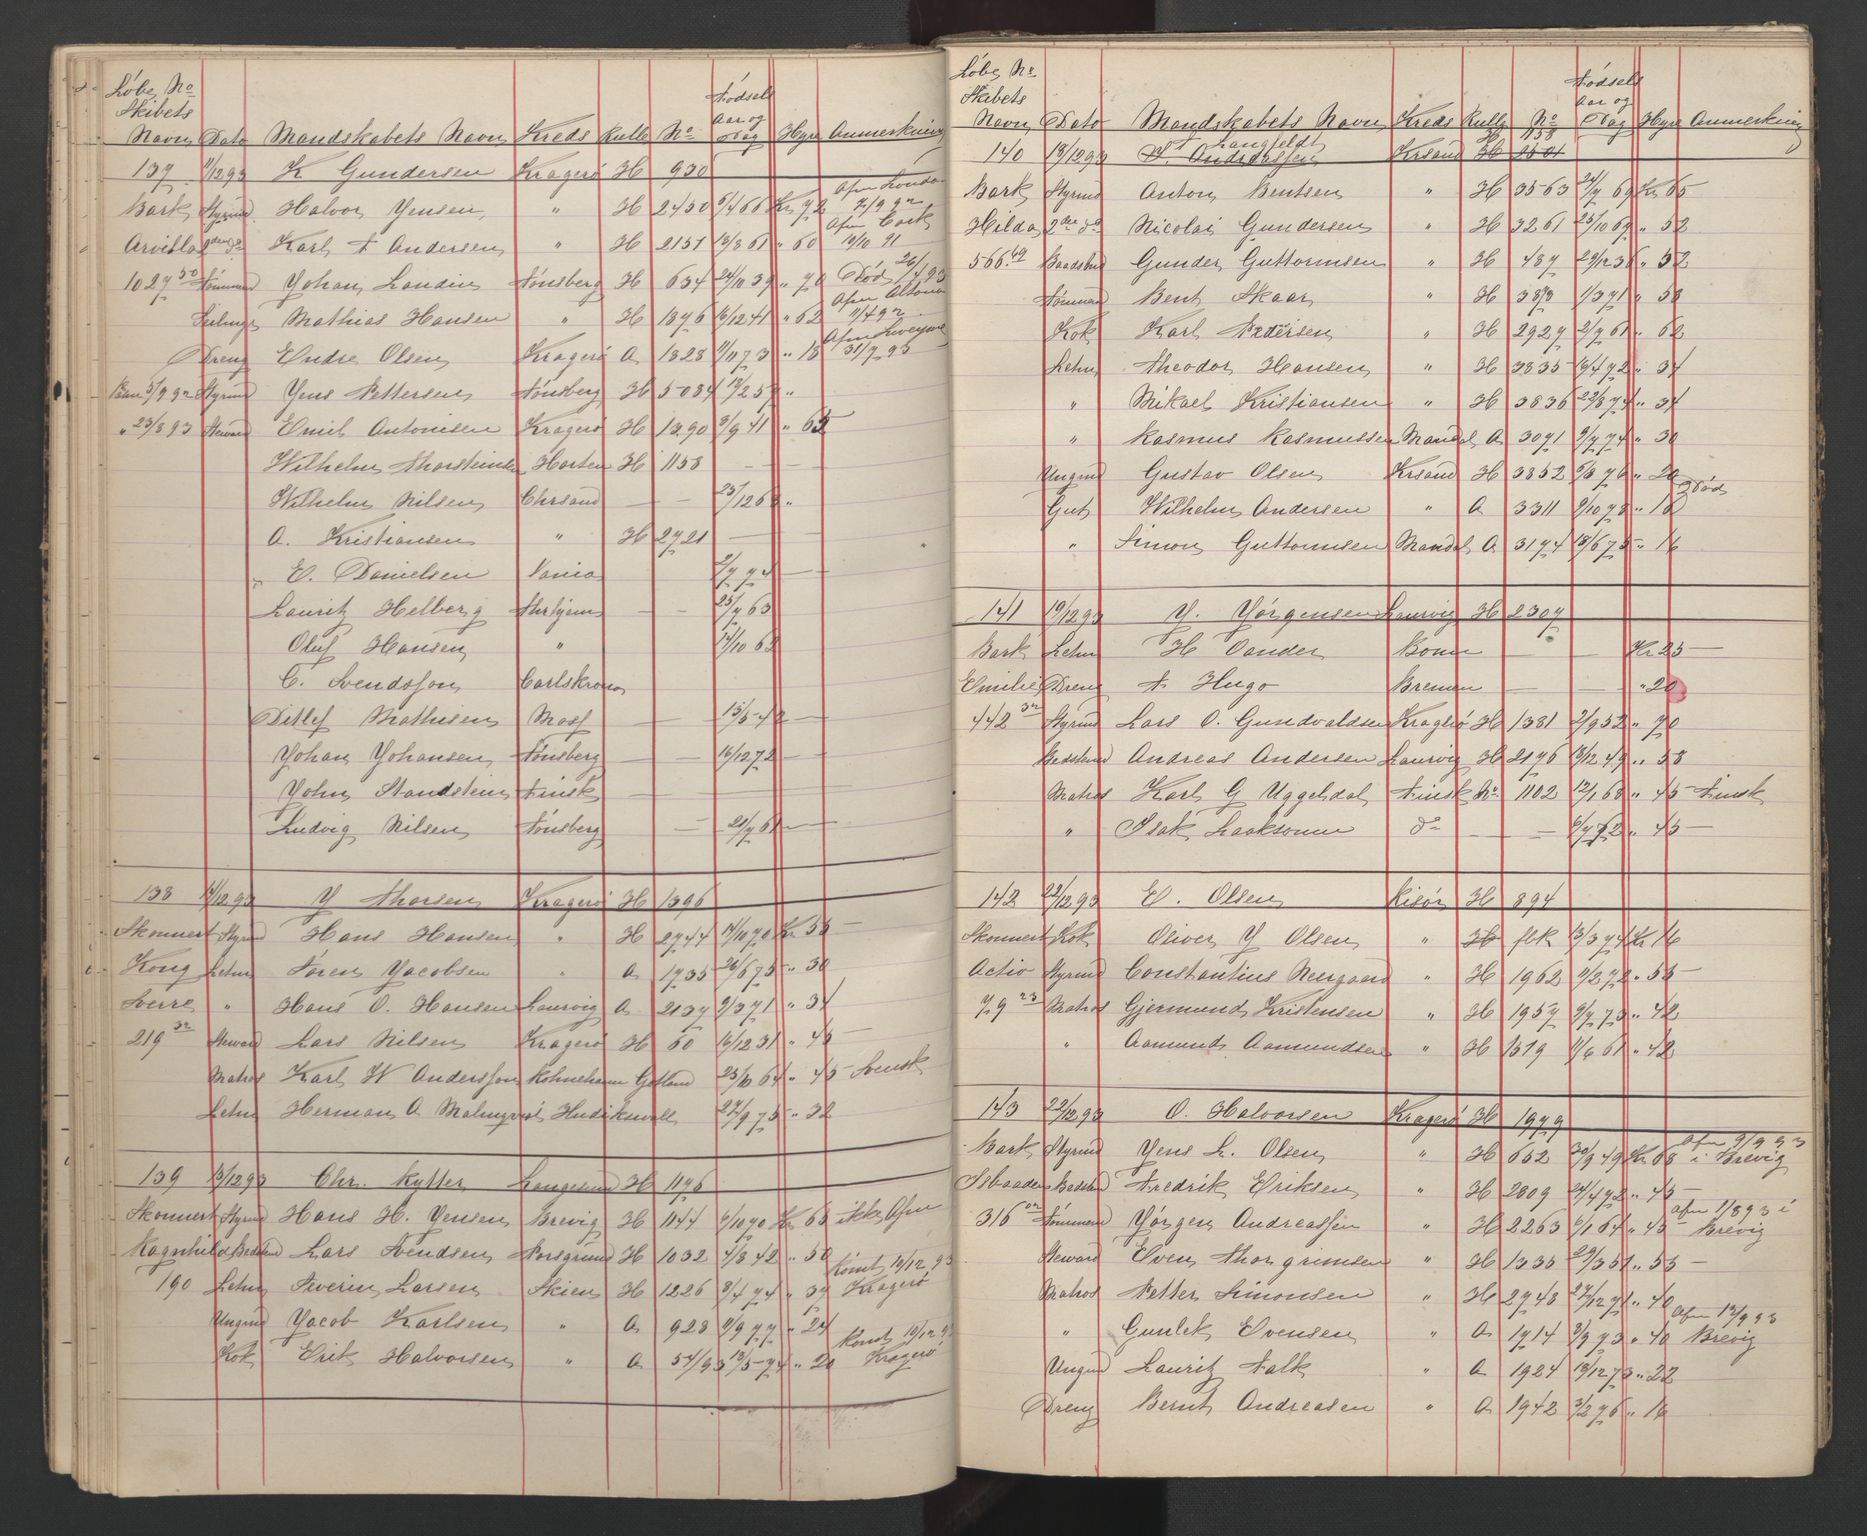 Løbe No
Skibets
Navn Dato Mandskabets Navn Kreds Rulle No Fødsels Aar og Dag Hyre Anmerkning
137 11/12 93 K Gundersen Kragerø H 930
Bark Styrmd Halvor Jensen " H 2450 5/4 66 Kr 72 Afm London 7/9 92
Arvilla 2den do Karl F Andersen " H 2151 13/3 61 " 60 Afm Cork 19/10 91
1027 50 Tømmermd Johan Landin Tønsberg H 634 24/10 39 " 70 Død 26/4 93
Seilmgr Mathias Hansen " H 1876 16/12 41 " 62 Afm Altona 11/4 92
Dreng Endre Olsen Kragerø A 1828 11/11 73 " 18 Afm 31/7 93
3/9 92 Styrmd Jens Pettersen Tønsberg H 5084 19/2 57 "
" 23/8 93 Steward Emil Antonisen Kragerø H 1390 3/9 41 " 65
Wilhelm Thorsteinsen Horten H 1158 — —
Wilhelm Nilsen Chrsand — — 25/12 68 "
A. Kristiansen " H 2721 — —
E. Danielsen Vania 2/7 74 —
Lauritz Helberg Thrhjem — — 25/7 63
Oluf Hansen " 14/10 62
C. Svendsson Carlskrona
Ditlef Mathisen Moss — — 15/5 42 —
Johan Johansen Tønsberg — 16/12 72 —
John Standstein Finsk — — —
Ludvig Nilsen Tønsberg — 21/7 61 —
138 14/12 93 J Thorsen Kragerø H 1396
Skonnert Styrmd Hans Hansen " H 2744 14/10 70 Kr 55 —
Kong Letm Søren Jacobsen " A 1735 26/6 75 " 30
Sverre " Hans O. Hansen Laurvig A 2137 9/3 71 " 34
219 32 Steward Lars Nilsen Kragerø H 50 16/12 31 " 45 —
Matros Karl W Andersson Gotland 23/10 64 " 45 — Svensk
Letm Herman A Malmqvist Hudikswall 27/9 75 " 32
139 13/12 93 Chr. Rytter Langesund H 1176
Skonnert Styrmd Hans H. Jensen Brevig H 1144 6/10 70 Kr 65 ikke Afm
Ragnhild Bedstmd Lars Svendsen Porsgrund H 1032 4/8 42 " 50
190 Letm Severin Larsen Skien H 1226 8/4 74 " 37 Rømt 10/12 93 Kragerø
Ungmd Jacob Karlsen " A 928 11/9 77 " 24
Kok Erik Halvorsen " A 54/93 13/5 74 " 20 Rømt 10/12 93 Kragerø
Løbe No
Skibets
Navn Dato Mandskabets Navn Kreds Rulle No Fødsels Aar og Dag Hyre Anmerkning
Langfeldt H 158
140 19/12 93 Anderssen Krsand H 2501
Bark Styrmd Anton Bentsen " H 3563 24/7 69 Kr 65
Hilda 2den do Nicolai Gundersen " H 3261 25/10 69 " 52
566.49 Baadsmd Gunder Guttormsen " H 487 29/12 36 " 52
Tømmermd Bent Skaar " H 1/3 71 " 58
Kok Karl Pedersen " H 2927 2/7 61 " 62
Letm Theodor Hansen " H 3835 16/4 72 " 34
" Mikael Kristiansen " H 3836 22/8 74 " 34
" Rasmus Rasmussen Mandal A 3071 9/7 74 " 30
Ungmd Gustav Olsen Krsand H 3852 5/8 76 " 20
Gut Wilhelm Andersen " A 3311 9/10 78 " 18 Død
" Simon Guttormsen Mandal A 3174 18/6 75 " 16
141 19/12 93 J. Jørgensen Laurvig H 2307
Bark Letm H Vander Bonn — — Kr 25 —
Emilie Dreng F Hugo Bremen — — " 20
442 32 Styrmd Lars O. Gundvaldsen Kragerø H 1381 2/9 52 " 70
Bedstmd Andreas Andersen Laurvig H 2176 13/12 49 " 58
Matros Karl G Uggeldal Finsk No 1102 12/1 68 " 45 — Finsk
" Isak Laaksonen do — — 6/7 72 " 45 —
142 22/12 93 E. Olsen Risør H 894
Skonnert Kok Oliver J Olsen " H flk 13/3 74 Kr 16
Activ Styrmd Constantius Neergaard " H 1962 11/2 72 " 55 —
79 23 Matros Gjermund Kristensen " H 1957 9/7 73 " 42
" Aamund Aamundsen " H 1519 11/6 61 " 42
143 22/12 93 O. Halvorsen Kragerø H 1979
Bark Styrmd Jens L. Olsen " H 652 30/9 49 Kr 68 Afm 9/9 93 i Brevig
Isbaaden Bedstmd Fredrik Eriksen " H 2809 24/4 72 " 45 —
316 02 Tømmermd Jørgen Andreassen " H 2263 6/1 64 " 45 Afm 1/8 93 i Brevig
Steward Even Thorgrimsen " H 1335 29/3 51 " 55 —
Matros Petter Simonsen " H 2748 27/12 71 " 40
" Gunlek Evensen " A 1914 3/9 73 " 40 Afm 12/9 93 Brevig
Ungmd Lauritz Falk " A 1924 18/12 73 " 22
Dreng Bernt Andreasen " A 1942 3/2 76 " 16